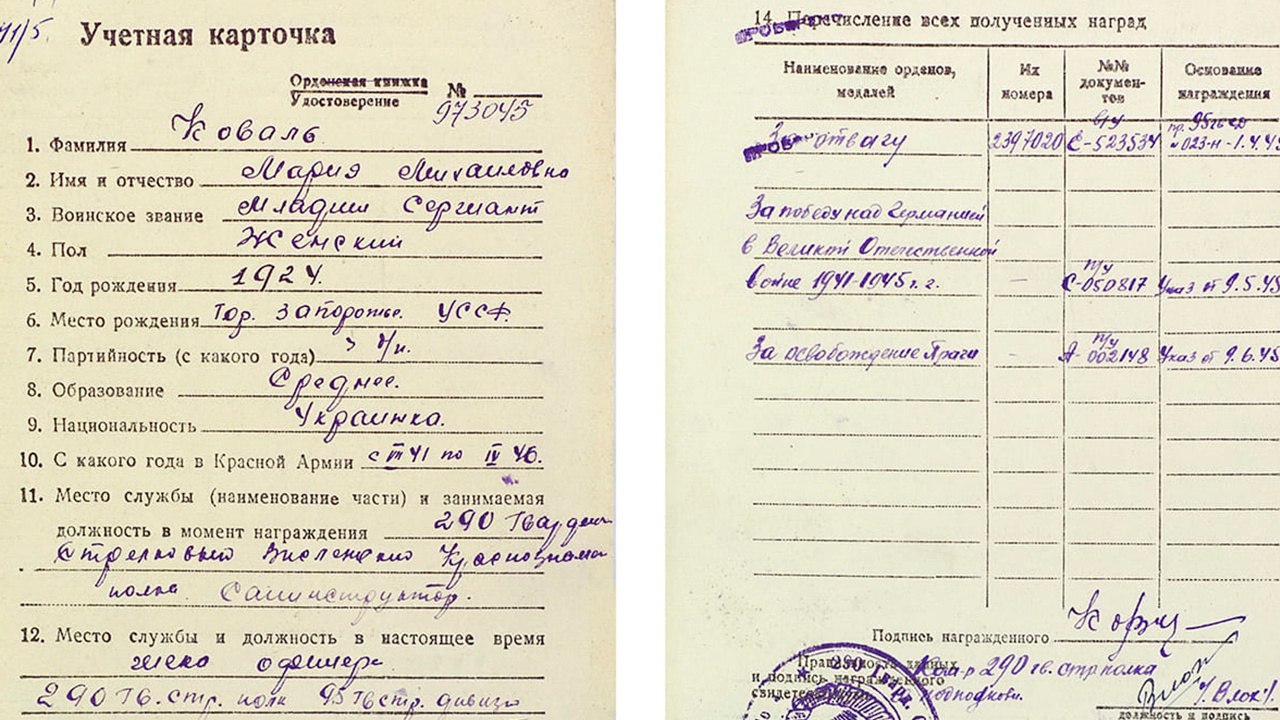 Учетная карточка
Орденская книжка
Удостоверение
№
973045
1. Фамилия Коваль
2. Имя и отчество Мария Михайловна
3. Воинское звание Младший Сержант
4. Пол Женский
5. Год рождения 1924.
6. Место рождения Гор. Запорожье УССР
7. Партийность (с какого года)
8. Образование Среднее.
9. Национальность Украинка.
10. С какого года в Красной Армии с 41 по IV 46.
11. Место службы (наименование части) и занимаемая
должность в момент награждения 290 Гвардейс
Стрелковый Висленский Краснознаме
полка Санинструктор.
12. Место службы и должность в настоящее время
жена офицера
290 Гв. Стр. полк 95 Гв стр. дивизи
14. Перечисление всех полученных наград
Наименование орденов, медалей
Их номера
№№ документов
Основание награждения
За отвагу 2397020 С-523534 пр. 95 гв сд № 023-н - 1.4.45
За победу над Германией
в Великой Отечественной
войне 1941-1945 г.г. — п/у С-050817 Указ от 9.5.45
За освобождение Праги — п/у А-002148 Указ от 9.6.45
Подпись награжденного
Правильность данных
и подпись награжденного
свидетельствую
Ком-р 290 гв. стр полка
подполковн.
должность и подпись